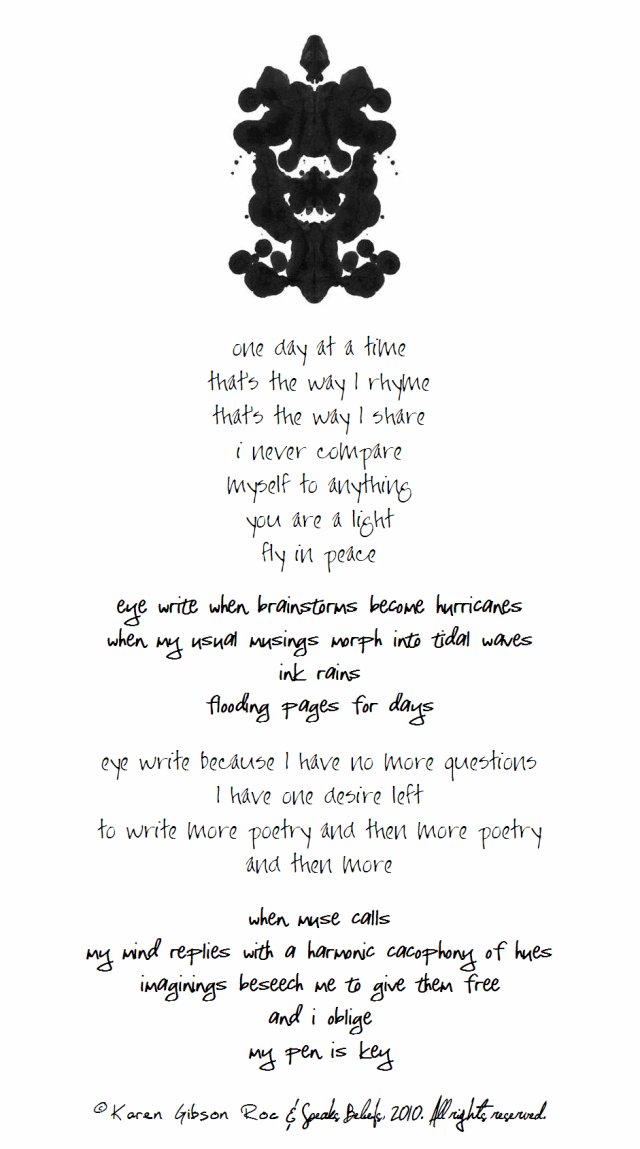 one day at a time
that's the way I rhyme
that's the way I share
i never compare
myself to anything
you are a light
fly in peace
eye write when brainstorms become hurricanes
when my usual musings morph into tidal waves
ink rains
flooding pages for days
eye write because I have no more questions
I have one desire left
to write more poetry and then more poetry
and then more
when muse calls
my mind replies with a harmonic cacophony of hues
imaginings beseech me to give them free
and i oblige
my pen is key
© Karen Gibson Roc & Speaks Beliefs, 2010. All rights reserved.